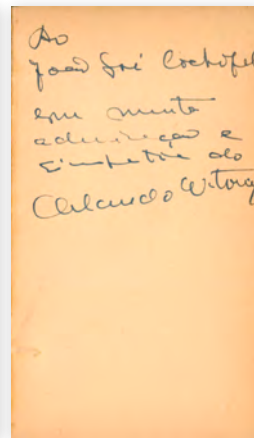 Ao
João José Cochofel
com muita
admiração e
simpatia do
Orlando Vitorino